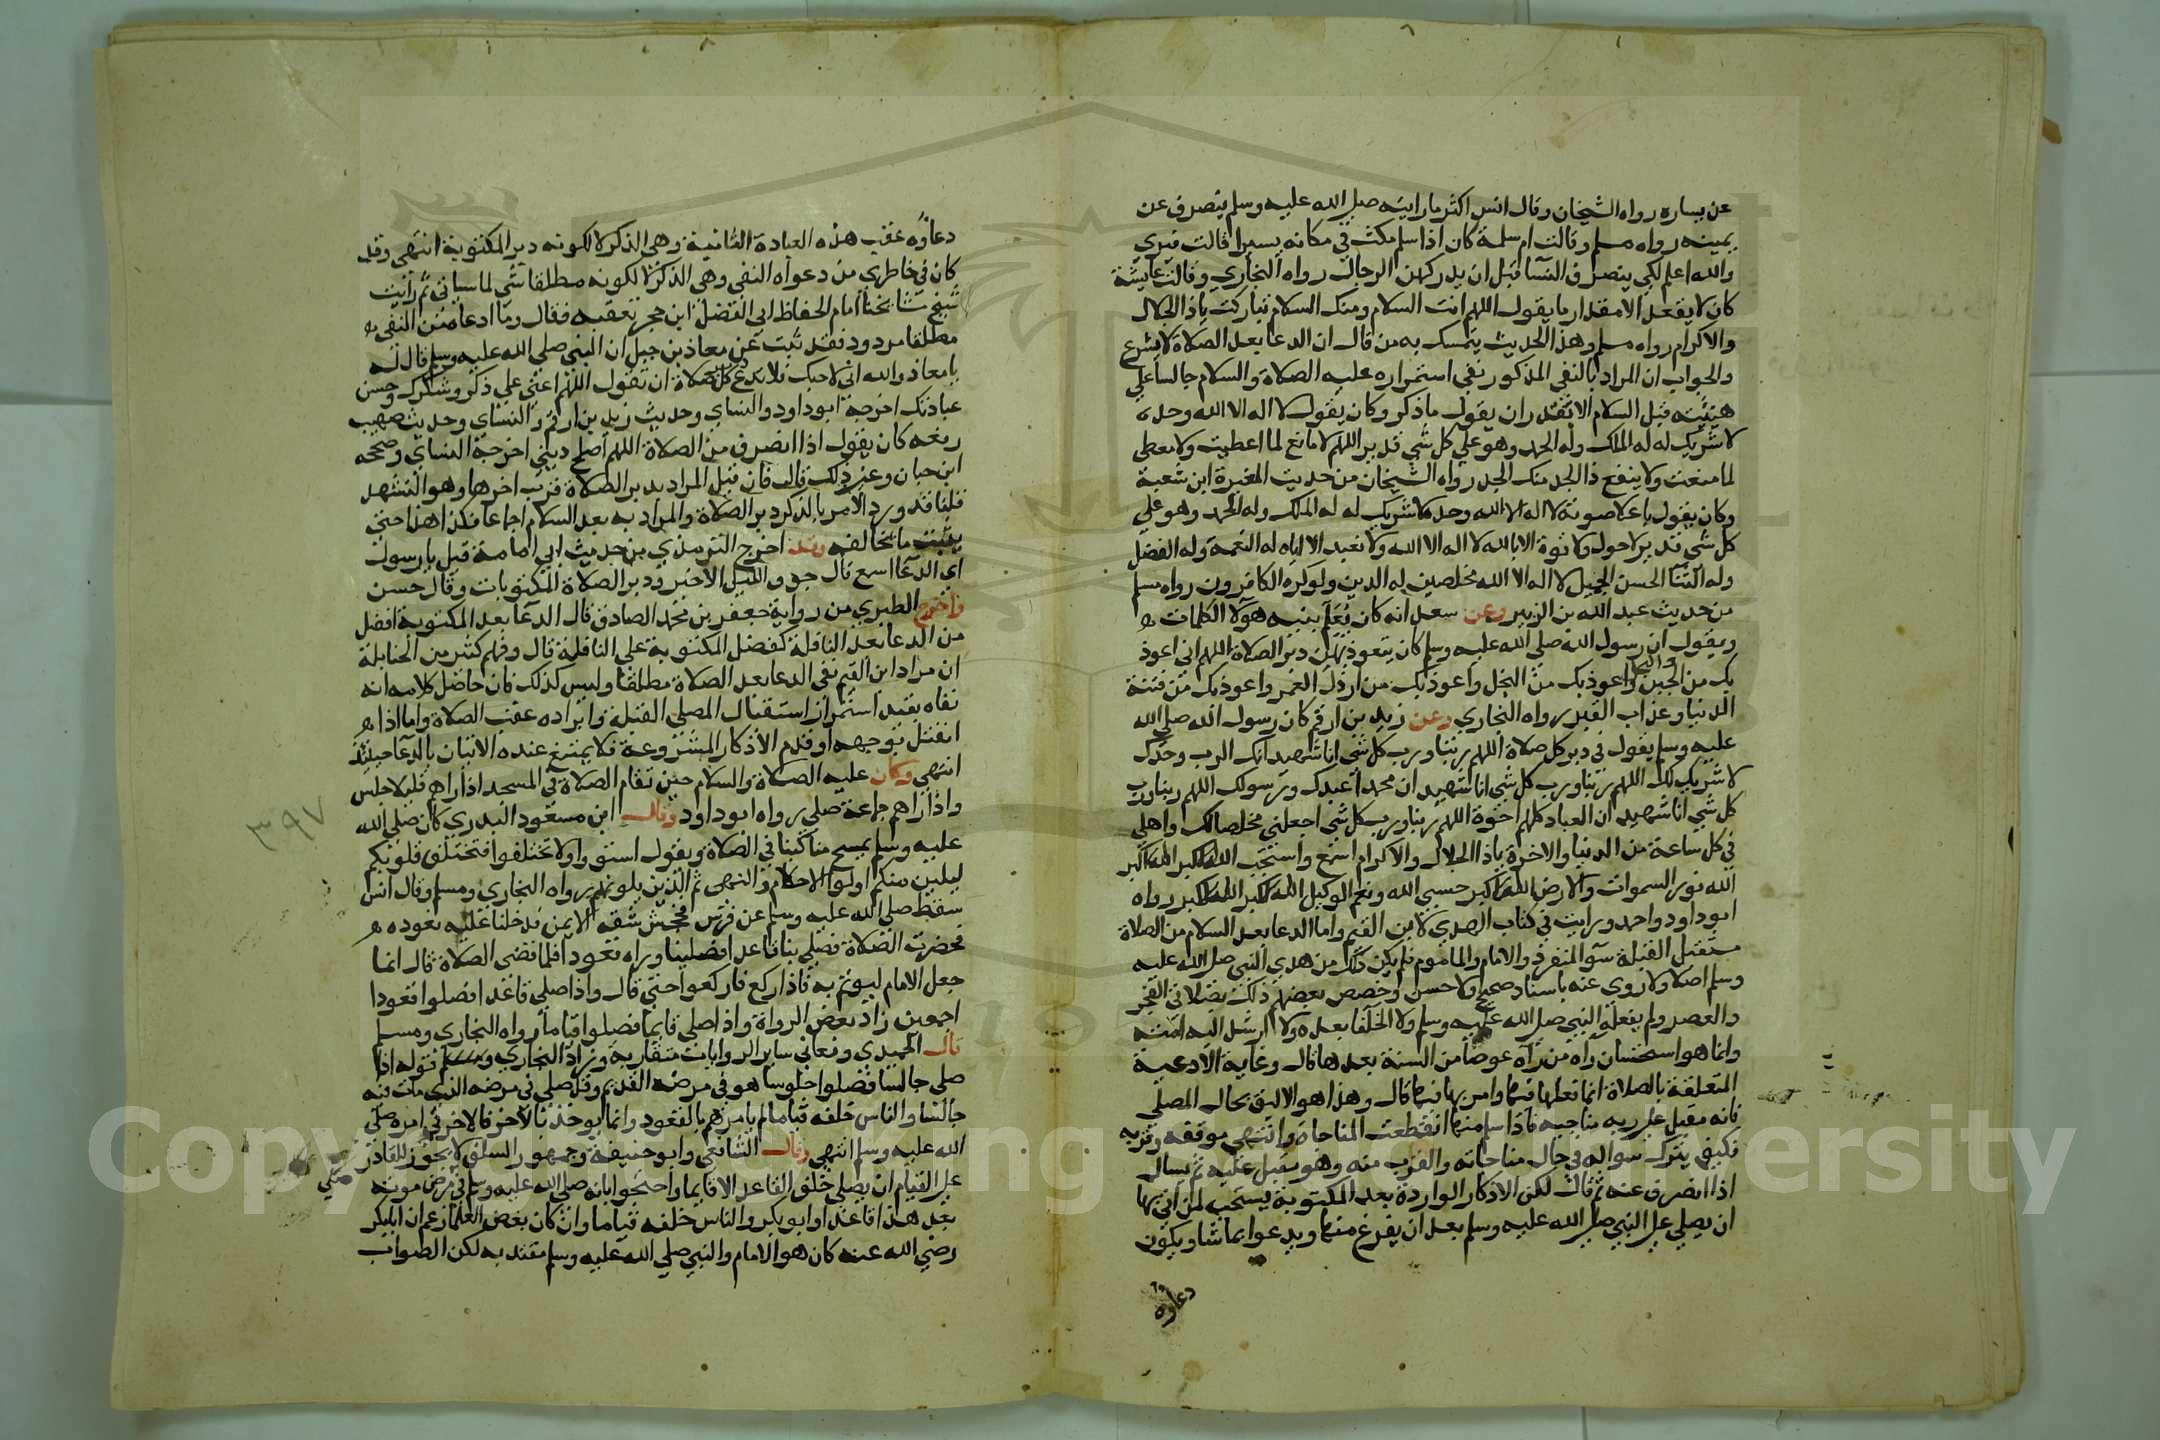 عن يساره رواه الشيخان وقال انس اكثر ما رايته صلى الله عليه وسلم ينصرف عن
يمينه رواه مسلم وقالت ام سلمة كان اذا سلم مكث في مكانه يسيرا قالت فنري
والله اعلم لكي ينصرف النسا قبل ان يدركهن الرجال رواه البخاري وقالت عايشة
كان لا يقعد الا مقدار ما يقول اللهم انت السلام ومنك السلام تباركت ياذا الجلال
والاكرام رواه مسلم وهذا الحديث يتمسك به من قال ان الدعا بعد الصلاة لا يشرع
والجواب ان المراد بالنفي المذكور نفي استمراره عليه الصلاة والسلام جالسا علي
هيئته قبل السلام الا بقدر ان يقول ما ذكر وكان يقول لا اله الا الله وحده
لا شريك له له الملك وله الحمد وهو علي كل شي قدير اللهم لا مانع لما اعطيت ولا معطي
لما منعت ولا ينفع ذا الجد منك الجد رواه الشيخان من حديث المغيرة ابن شعبة
وكان يقول باعلا صوته لا اله الا الله وحده لا شريك له له الملك وله الحمد وهو علي
كل شي قدير لا حول ولا قوة الا بالله لا اله الا الله ولا نعبد الا اياه له النعمة وله الفضل
وله الثنا الحسن الجميل لا اله الا الله مخلصين له الدين ولو كره الكافرون رواه مسلم
من حديث عبد الله بن الزبير وعن سعد انه كان يعلم بنيه هولا الكلمات
ويقول ان رسول الله صلى الله عليه وسلم كان يتعوذ بهن دبر الصلاة اللهم اني اعوذ
بك من الجبن واعوذ بك من البخل واعوذ بك من ارذل العمر واعوذ بك من فتنة
الدنيا وعذاب القبر رواه البخاري وعن زيد بن ارقم كان رسول الله صلى الله
عليه وسلم يقول في دبر كل صلاة اللهم ربنا ورب كل شي انا شهيد انك الرب وحدك
لا شريك لك اللهم ربنا ورب كل شي انا شهيد ان محمدا عبدك ورسولك اللهم ربنا ورب
كل شي انا شهيد ان العباد كلهم اخوة اللهم ربنا ورب كل شي اجعلني مخلصا لك واهلي
في كل ساعة من الدنيا والاخرة ياذا الجلال والاكرام اسمع واستجب الله اكبر الله اكبر
الله نور السموات والارض الله اكبر حسبي الله ونعم الوكيل الله اكبر الله اكبر رواه
ابو داود واحمد ورايت في كتاب الهدي لابن القيم واما الدعا بعد السلام من الصلاة
مستقبل القبلة سوا المنفرد والامام والماموم فلم يكن ذلك من هدي النبي صلى الله عليه
وسلم اصلا ولا روي عنه باسناد صحيح ولا حسن وخصص بعضهم ذلك بصلاتي الفجر
والعصر ولم يفعله النبي صلى الله عليه وسلم ولا الخلفا بعده ولا ارشد اليه امته
وانما هو استحسان راه من راه عوضا من السنة بعدها قال وغاية الادعية
المتعلقة بالصلاة انما فعلها فيها وامر بها فيها قال وهذا هو الاليق بحال المصلي
فانه مقبل علي ربه مناجيه فاذا سلم منها انقطعت المناجاة وانتهي موقفه وقربه
فكيف يترك سواله في حال مناجاته والقرب منه وهو مقبل عليه ثم يسال
اذا انصرف عنه ثم قال لكن الاذكار الواردة بعد المكتوبة يستحب لمن اتي بها
ان يصلي علي النبي صلى الله عليه وسلم بعد ان يفرغ منها ويدعوا بما شا ويكون
دعاوه
دعاوه عقب هذه العبادة الثانية وهي الذكر لا لكونه دبر المكتوبة انتهي وقد
كان في خاطري من دعواه النفي وهي الذكر لا لكونه مطلقا شي لما سياتي ثم رايت
شيخ مشايخنا امام الحفاظ ابي الفضل ابن حجر تعقبه فقال وما ادعاه من النفي
مطلقا مردود فقد ثبت عن معاذ بن جبل ان النبي صلى الله عليه وسلم قال له
يا معاذ والله اني لاحبك فلا تدع كل صلاة ان تقول اللهم اعني علي ذكرك وشكرك وحسن
عبادتك اخرجه ابو داود والنساي وحديث زيد بن ارقم والنساي وحديث صهيب
رفعه كان يقول اذا انصرف من الصلاة اللهم اصلح ديني اخرجه النساي وصححه
ابن حبان وغير ذلك قال فان قيل المراد بدبر الصلاة قرب اخرها وهو التشهد
قلنا قد ورد الامر بالذكر دبر الصلاة والمراد به بعد السلام اجماعا فكذا هذا حتي
يثبت ما يخالفه وقد اخرج الترمذي من حديث ابي امامة قيل يا رسول
اي الدعا اسمع قال جوف الليل الاخير ودبر الصلاة المكتوبات وقال حسن
واخرج الطبري من رواية جعفر بن محمد الصادق قال الدعا بعد المكتوبة افضل
من الدعا بعد النافلة كفضل المكتوبة علي النافلة قال وفهم كثير من الحنابلة
ان مراد ابن القيم نفي الدعا بعد الصلاة مطلقا وليس كذلك فان حاصل كلامه انه
نفاه بقيد استمرار استقبال المصلي القبلة وايراده عقب الصلاة واما اذا
انفتل بوجهه او قدم الاذكار المشروعة فلا يمتنع عنده الاتيان بالدعا حينئذ
انتهي وكان عليه الصلاة والسلام حين تقام الصلاة في المسجد اذا راهم قليلا جلس
واذا راهم جماعة صلي رواه ابو داود وقال ابن مسعود البدري كان صلى الله
عليه وسلم يمسح مناكبنا في الصلاة ويقول استووا ولا تختلفوا فتختلف قلوبكم
ليليني منكم اولوا الاحلام والنهي ثم الذين يلونهم رواه البخاري ومسلم وقال انس
سقط صلى الله عليه وسلم عن فرس فجحش شقه الايمن فدخلنا عليه نعوده
فحضرت الصلاة فصلي بنا قاعدا فصلينا وراه قعودا فلما قضي الصلاة قال انما
جعل الامام ليوتم به فاذا ركع فاركعوا حتي قال واذا صلي قاعدا فصلوا قعودا
اجمعين زاد بعض الرواة واذا صلي قايما فصلوا قياما رواه البخاري ومسلم
قال الحميدي ومعاني ساير الروايات متقاربة وزاد البخاري قوله اذا
صلي جالسا فصلوا جلوسا هو في مرضه القديم وقد صلي في مرضه الذي مات فيه
جالسا والناس خلفه قياما لم يامرهم بالقعود وانما يوخذ بالاخر فالاخر من امره صلى
الله عليه وسلم انتهي وقال الشافعي وابو حنيفة وجمهور السلف لا يجوز للقادر
علي القيام ان يصلي خلف القاعد الا قايما واحتجوا بانه صلى الله عليه وسلم صلي في مرض موته
بعد هذا قاعدا وابو بكر والناس خلفه قياما وان كان بعض العلما زعم ان ابا بكر
رضي الله عنه كان هو الامام والنبي صلى الله عليه وسلم مقتد به لكن الصواب
٣٩٧
Copyright © King Saud University